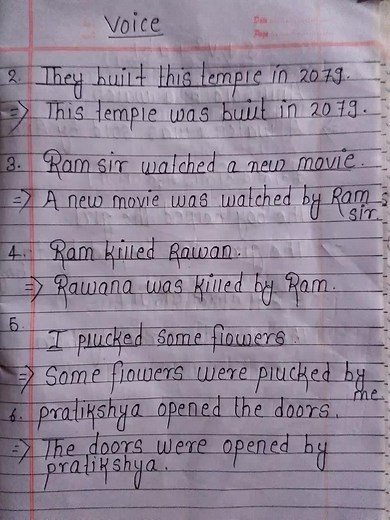 Voice
2. They built this temple in 2079.
=> This temple was built in 2079.
3. Ram sir watched a new movie.
=> A new movie was watched by Ram
sir.
4. Ram killed Rawan.
=> Rawana was killed by Ram.
5.
I plucked some flowers.
=> Some flowers were plucked by
me.
6. pratikshya opened the doors.
=> The doors were opened by
pratikshya.